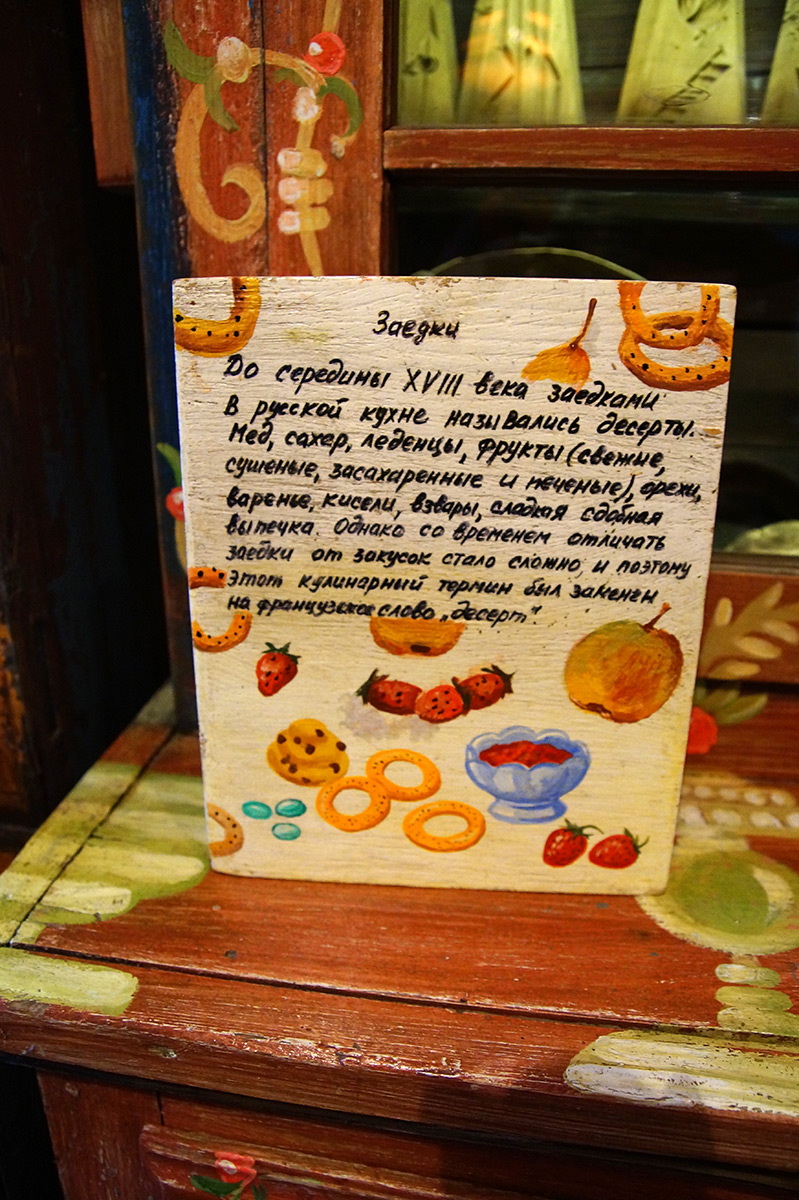 Заедки
До середины XVIII века заедками
В русской кухне назывались десерты.
Мёд, сахар, леденцы, фрукты (свежие,
сушеные, засахаренные и печеные), орехи,
варенье, кисели, взвары, сладкая сдобная
выпечка. Однако со временем отличать
заедки от закусок стало сложно, и поэтому
этот кулинарный термин был заменен
на французское слово „десерт".